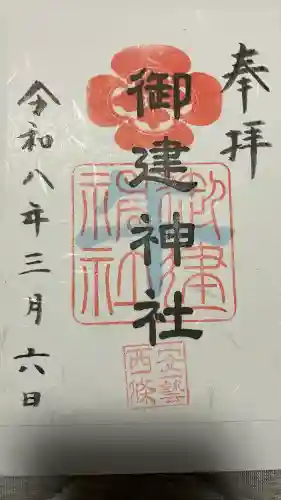 奉拝
御建神社
御建神社
安藝西條
令和八年三月六日